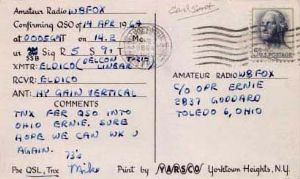 Card Sent
Amateur Radio W8FOX
Confirming QSO of 14 APR 1964
at 0005GMT on 14.2 Mc.
ur SSB Sig R 5 S 9+ T
XMTR: ELDICO (DELCON LINEAR)
RCVR: ELDICO
ANT: HY GAIN VERTICAL
COMMENTS
TNX FER QSO INTO
OHIO ERNIE. SURE
HOPE WE CAN WK U
AGAIN. 73's
Pse QSL, Tnx Mike
Print by YARSCO Yorktown Heights, N.Y.
AMATEUR RADIO W8FOX
C/O OPR ERNIE
2837 GODDARD
TOLEDO 6, OHIO